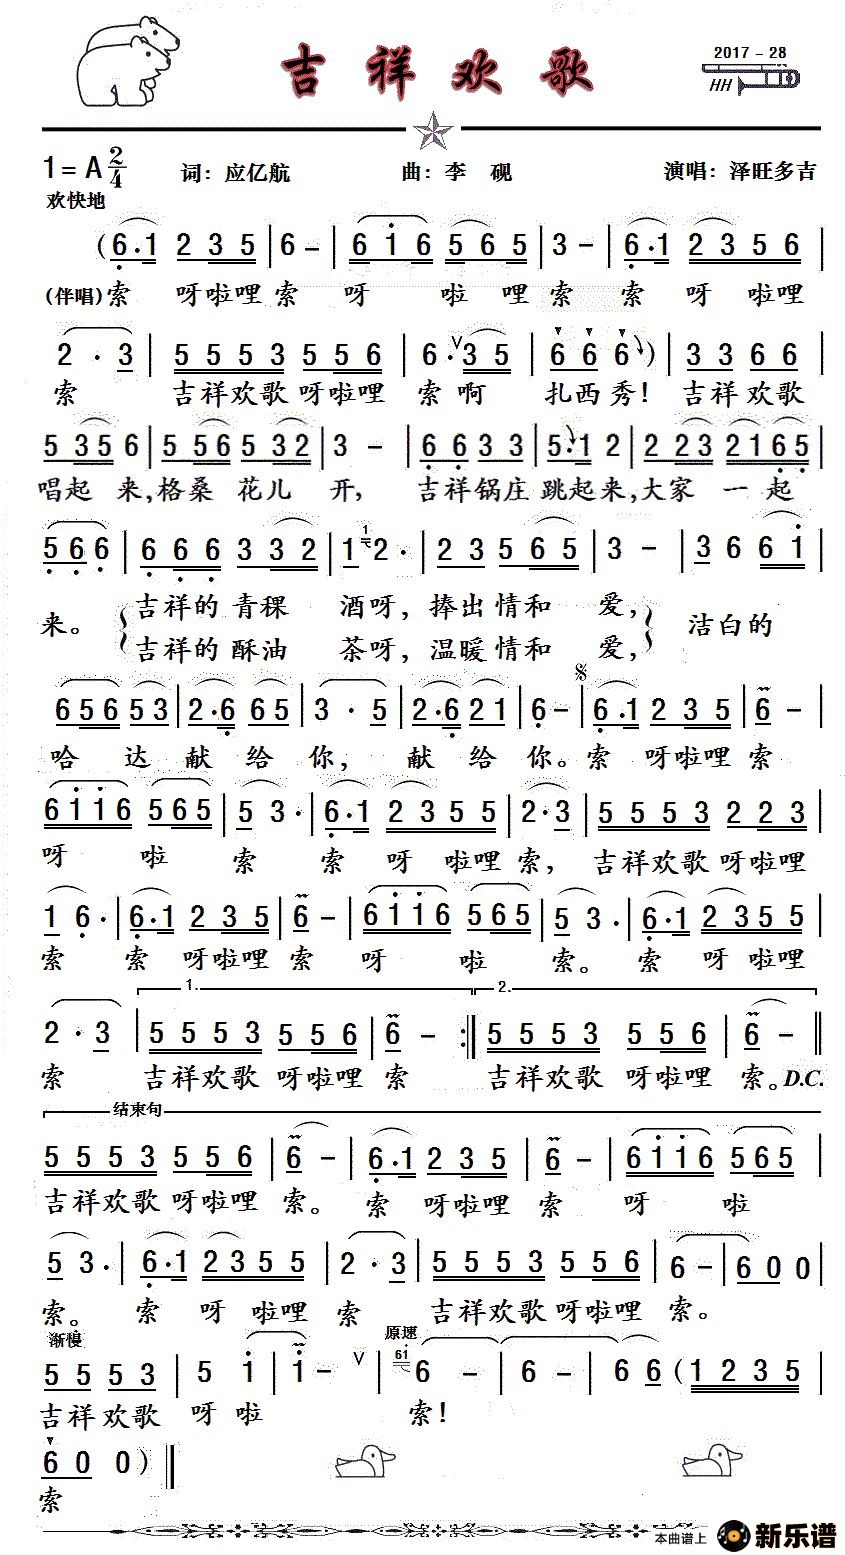 吉祥欢歌
2017－28
HH
1＝A 2/4 词：应亿航 曲：李 砚 演唱：泽旺多吉
欢快地
(6·1 2 3 5 | 6 － | 6 1 6 5 6 5 | 3 － | 6·1 2 3 5 6 |
(伴唱)索 呀啦哩 索 呀 啦 哩 索 索 呀 啦哩
2 · 3 | 5 5 5 3 5 5 6 | 6· ∨ 3 5 | 6 6 6 ) | 3 3 6 6 |
索 吉祥欢歌 呀啦哩 索 啊 扎西秀！ 吉祥欢歌
5 3 5 6 | 5 5 6 5 3 2 | 3 － | 6 6 3 3 | 5·1 2 | 2 2 3 2 1 6 5 |
唱起 来，格桑 花儿 开， 吉祥锅庄 跳起来，大家 一 起
5 6 6 | 6 6 6 3 3 2 | 1 1 2 · | 2 3 5 6 5 | 3 － | 3 6 6 1 |
来。 吉祥的 青稞 酒呀，捧出 情和 爱， 洁白的
吉祥的 酥油 茶呀，温暖 情和 爱，
6 5 6 5 3 | 2·6 6 5 | 3 · 5 | 2·6 2 1 | 6 － | 6·1 2 3 5 | 6 － |
哈 达 献 给 你， 献 给 你。索 呀啦哩 索
6 1 1 6 5 6 5 | 5 3 · | 6·1 2 3 5 5 | 2 · 3 | 5 5 5 3 2 2 3 |
呀 啦 索 索 呀 啦哩 索， 吉祥欢歌 呀啦哩
1 6 · | 6·1 2 3 5 | 6 － | 6 1 1 6 5 6 5 | 5 3 · | 6·1 2 3 5 5 |
索 索 呀啦哩 索 呀 啦 索。 索 呀 啦哩
1. 2.
2 · 3 | 5 5 5 3 5 5 6 | 6 － :‖ 5 5 5 3 5 5 6 | 6 － ‖
索 吉祥欢歌 呀啦哩 索 吉祥欢歌 呀啦哩 索。D.C.
结束句
5 5 5 3 5 5 6 | 6 － | 6·1 2 3 5 | 6 － | 6 1 1 6 5 6 5 |
吉祥欢歌 呀啦哩 索。 索 呀啦哩 索 呀 啦
5 3 · | 6·1 2 3 5 5 | 2 · 3 | 5 5 5 3 5 5 6 | 6 － | 6 0 0 |
索。 索 呀 啦哩 索 吉祥欢歌 呀啦哩 索。
渐慢 原速
5 5 5 3 | 5 1 | 1 － ∨ | 61 6 － | 6 － | 6 6 ( 1 2 3 5 |
吉祥欢歌 呀 啦 索！
6 0 0 ) ‖
索
本曲谱上 新乐谱